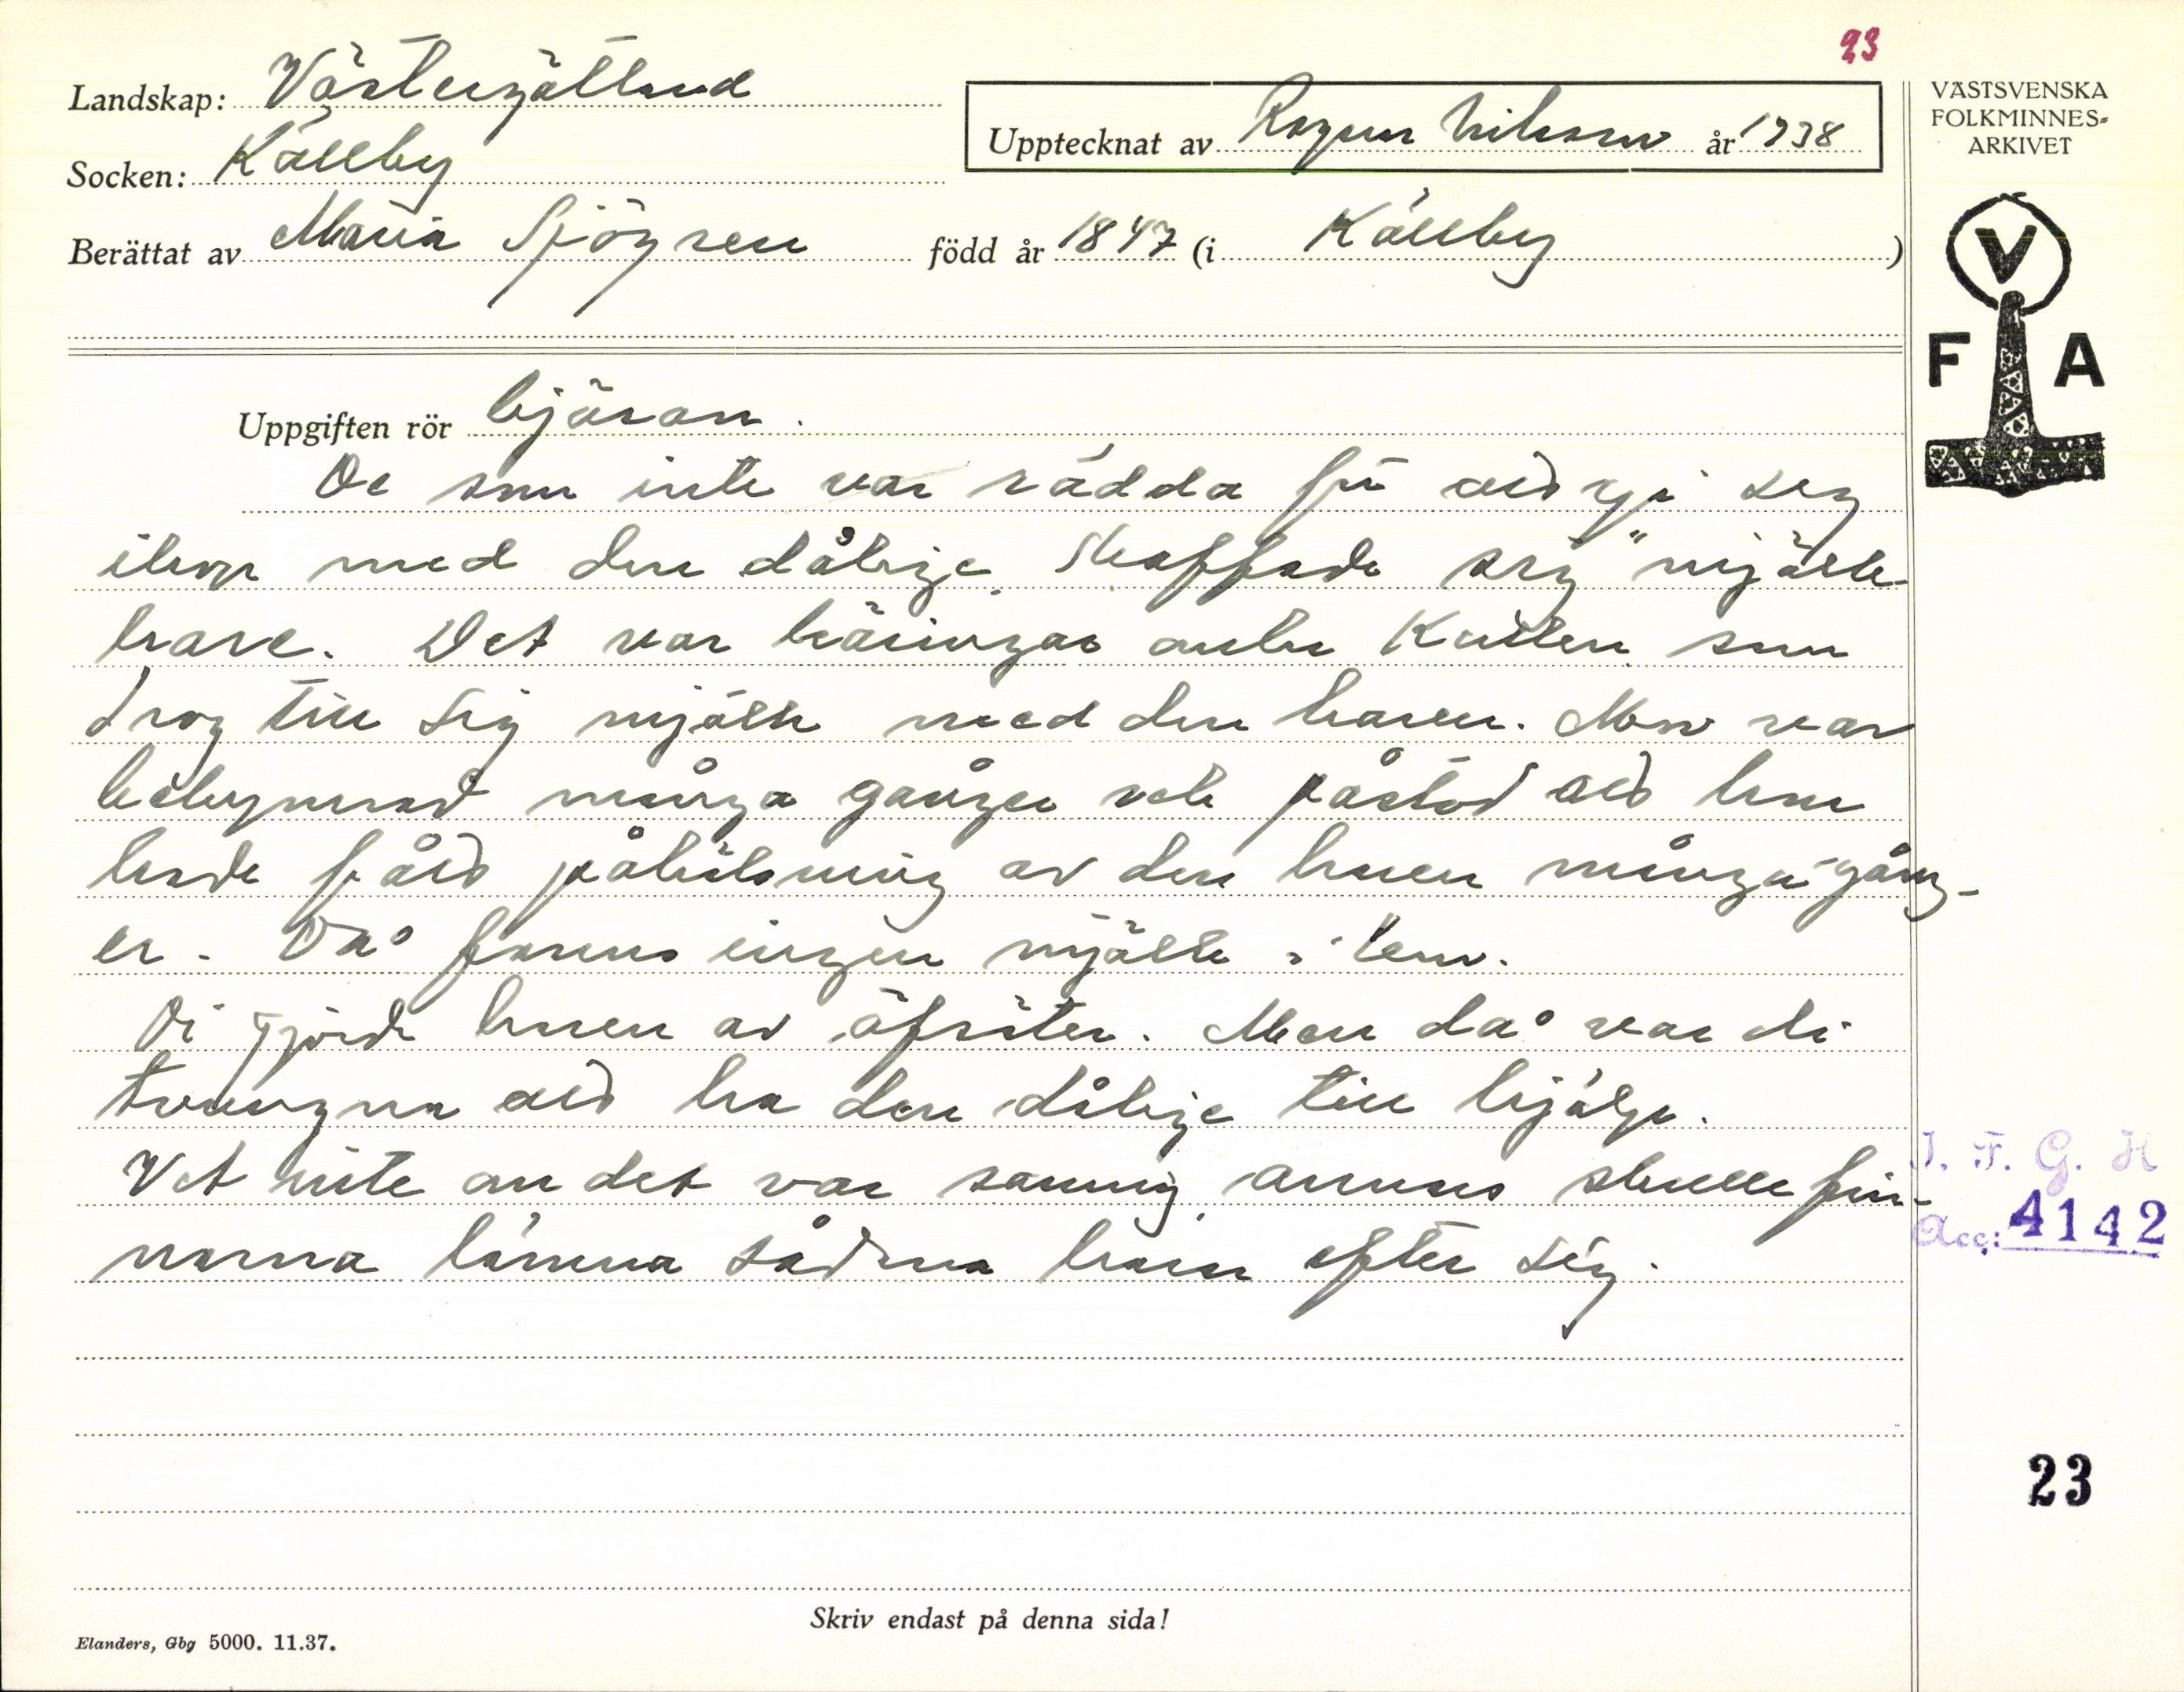 23
Landskap: Västergötland
Upptecknat av Ragnar Nilsson år 1938
VÄSTSVENSKA
FOLKMINNES-
ARKIVET
Socken: Källby
Berättat av Maria Sjögren född år 1847 (i Källby)
V
F A
Uppgiften rör bjäran.
De som inte var rädda för att gi seg
ihop med den dålige skaffade seg "mjölk-
hare. Det var käringar som
drog till sig mjölk med den haren. Mor var
bekymrad många gånger och påstod att hon
hade fått påhälsning av den haren många gång-
er. Då fanns ingen mjölk i
Di gjorde haren av äfsiter. Men då var di
tvungna att ha den dålige till hjälp.
Vet inte om det var sanning annars skulle fin-
narna lämna sådana harar efter sig.
I. F. G. H
Acc: 4142
23
Skriv endast på denna sida!
Elanders, Gbg 5000. 11.37.